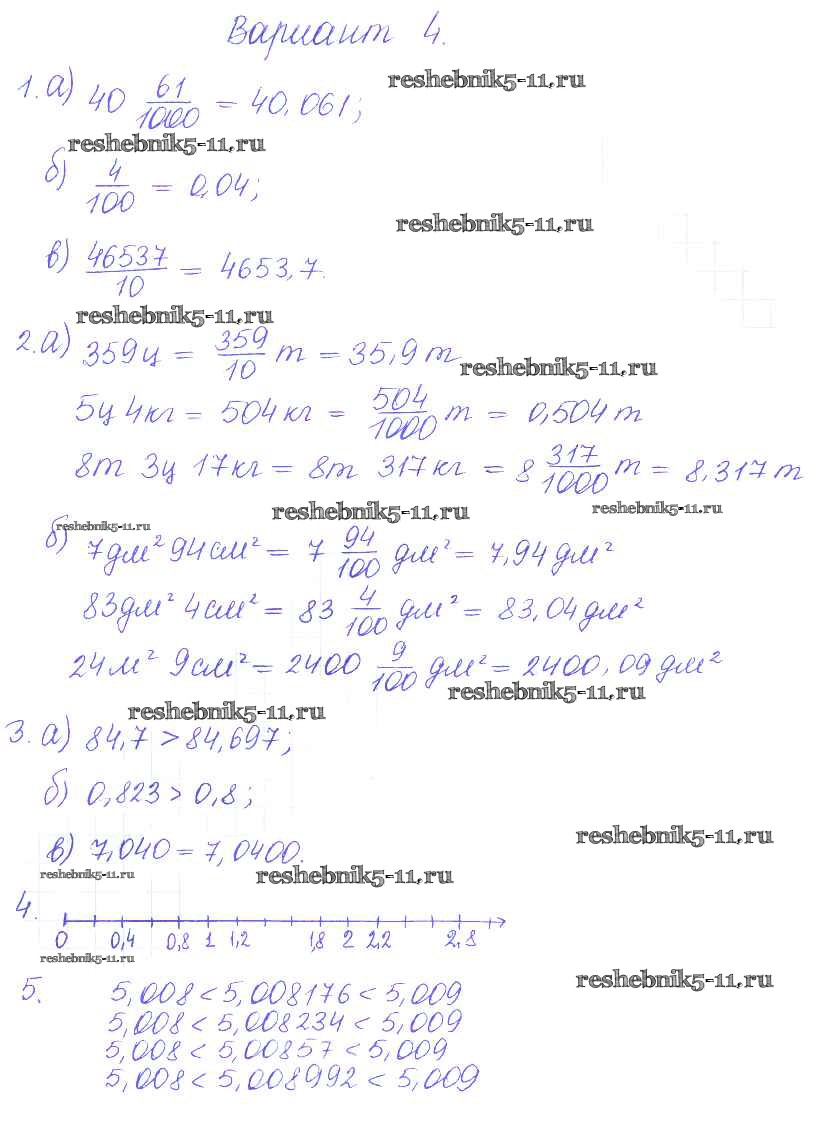 Вариант 4.
1. а) 40 61/1000 = 40,061;
reshebnik5-11.ru
reshebnik5-11.ru
б) 4/100 = 0,04;
reshebnik5-11.ru
в) 46537/10 = 4653,7.
reshebnik5-11.ru
2. а) 359ц = 359/10 т = 35,9 т
reshebnik5-11.ru
5ц 4кг = 504 кг = 504/1000 т = 0,504 т
8т 3ц 17кг = 8т 317кг = 8 317/1000 т = 8,317 т
reshebnik5-11.ru
reshebnik5-11.ru
reshebnik5-11.ru
б) 7дм² 94см² = 7 94/100 дм² = 7,94 дм²
83дм² 4см² = 83 4/100 дм² = 83,04 дм²
24м² 9см² = 2400 9/100 дм² = 2400,09 дм²
reshebnik5-11.ru
reshebnik5-11.ru
3. а) 84,7 > 84,697;
б) 0,823 > 0,8;
reshebnik5-11.ru
в) 7,040 = 7,0400.
reshebnik5-11.ru
reshebnik5-11.ru
4.
0 0,4 0,8 1 1,2 1,8 2 2,2 2,8
reshebnik5-11.ru
reshebnik5-11.ru
5. 5,008 < 5,008176 < 5,009
5,008 < 5,008234 < 5,009
5,008 < 5,00857 < 5,009
5,008 < 5,008992 < 5,009